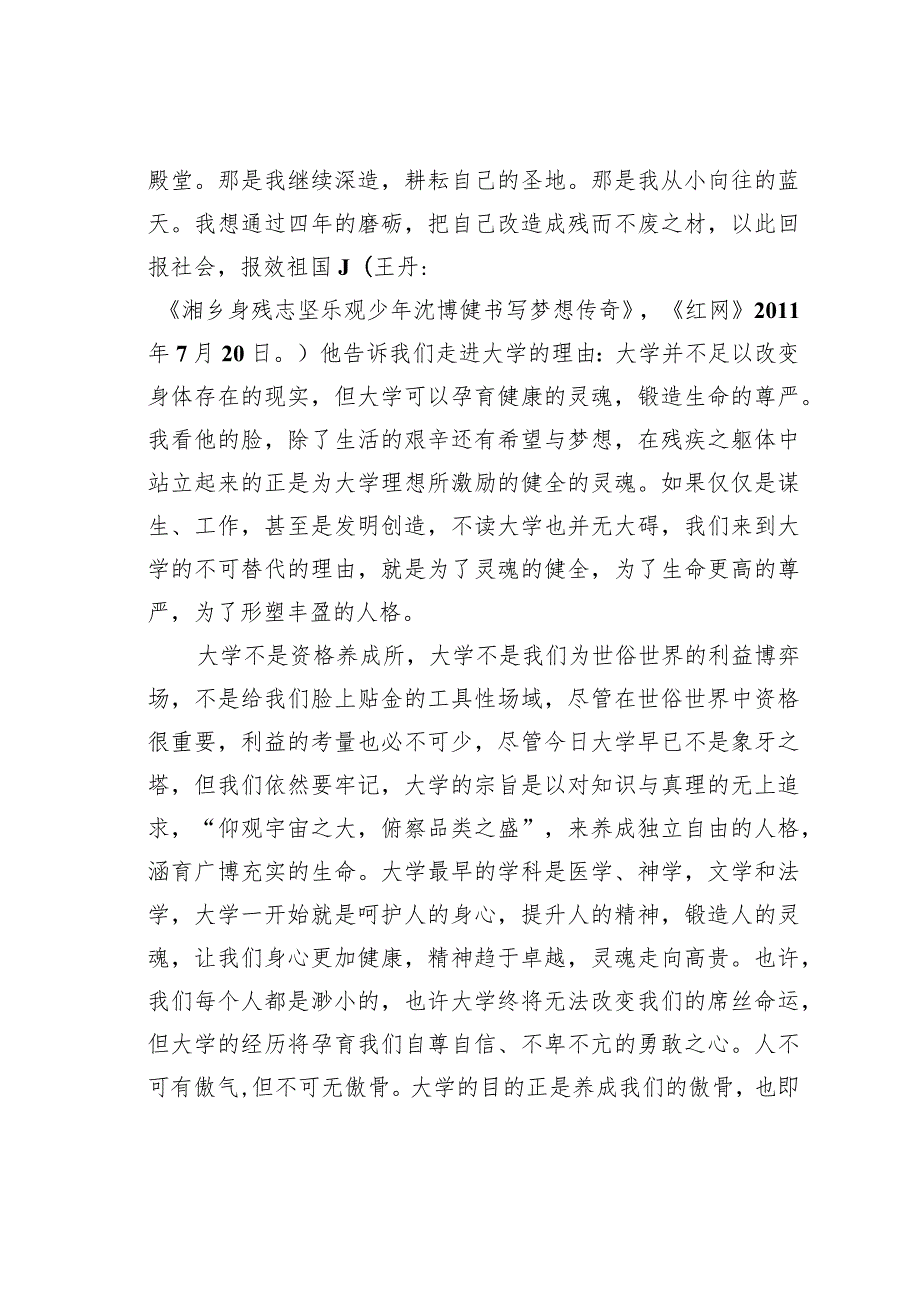 殿堂。那是我继续深造，耕耘自己的圣地。那是我从小向往的蓝
天。我想通过四年的磨砺，把自己改造成残而不废之材，以此回
报社会，报效祖国J（王丹:
《湘乡身残志坚乐观少年沈博健书写梦想传奇》，《红网》2011
年7月20日。）他告诉我们走进大学的理由：大学并不足以改变
身体存在的现实，但大学可以孕育健康的灵魂，锻造生命的尊严。
我看他的脸，除了生活的艰辛还有希望与梦想，在残疾之躯体中
站立起来的正是为大学理想所激励的健全的灵魂。如果仅仅是谋
生、工作，甚至是发明创造，不读大学也并无大碍，我们来到大
学的不可替代的理由，就是为了灵魂的健全，为了生命更高的尊
严，为了形塑丰盈的人格。
大学不是资格养成所，大学不是我们为世俗世界的利益博弈
场，不是给我们脸上贴金的工具性场域，尽管在世俗世界中资格
很重要，利益的考量也必不可少，尽管今日大学早已不是象牙之
塔，但我们依然要牢记，大学的宗旨是以对知识与真理的无上追
求，“仰观宇宙之大，俯察品类之盛”，来养成独立自由的人格，
涵育广博充实的生命。大学最早的学科是医学、神学，文学和法
学，大学一开始就是呵护人的身心，提升人的精神，锻造人的灵
魂，让我们身心更加健康，精神趋于卓越，灵魂走向高贵。也许，
我们每个人都是渺小的，也许大学终将无法改变我们的席丝命运，
但大学的经历将孕育我们自尊自信、不卑不亢的勇敢之心。人不
可有傲气,但不可无傲骨。大学的目的正是养成我们的傲骨，也即